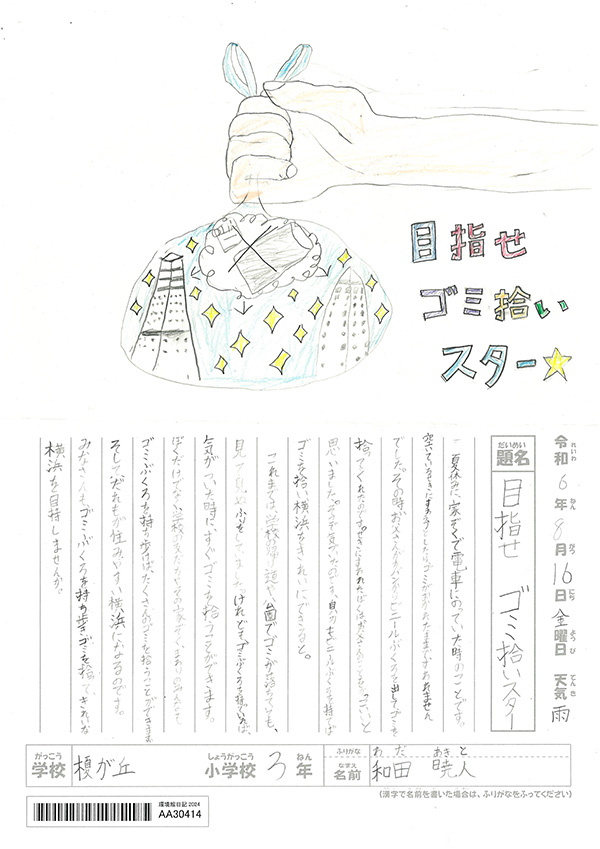 目指せ
ゴミ拾い
スター
令和6年8月16日金曜日 天気 雨
れいわ ねん がつ にち ようび てんき
だいめい
題名
目指せ ゴミ拾いスター
夏休みに、家ぞくで電車にのっていた時のことです。
空いているせきにすわろうとしたら、ゴミが
でした。その時お
拾ってくれたのです。
思いました。
ゴミを拾い横浜をきれいにできると。
これまでは、学校の帰り道や公園でゴミが落ちていても、
見て見ぬふりをしてました。けれどもゴミぶくろを
気がついた時に、すぐゴミを拾うことができます。
ぼくだけでなく学校の友だちやその家ぞく
ゴミぶくろを持ち歩けば、たくさんのゴミを拾うことができます
そしてだれもが住みやすい横浜になるのです。
みなさんもゴミぶくろを持ち歩きゴミを拾ってきれいな
横浜を目指しませんか。
がっこう しょうがっこう ねん
学校 榎が丘 小学校 3年
ふりがな わだ あきと
なまえ
名前 和田 暁人
(漢字で名前を書いた場合は、ふりがなをふってください)
環境絵日記 2024
AA30414